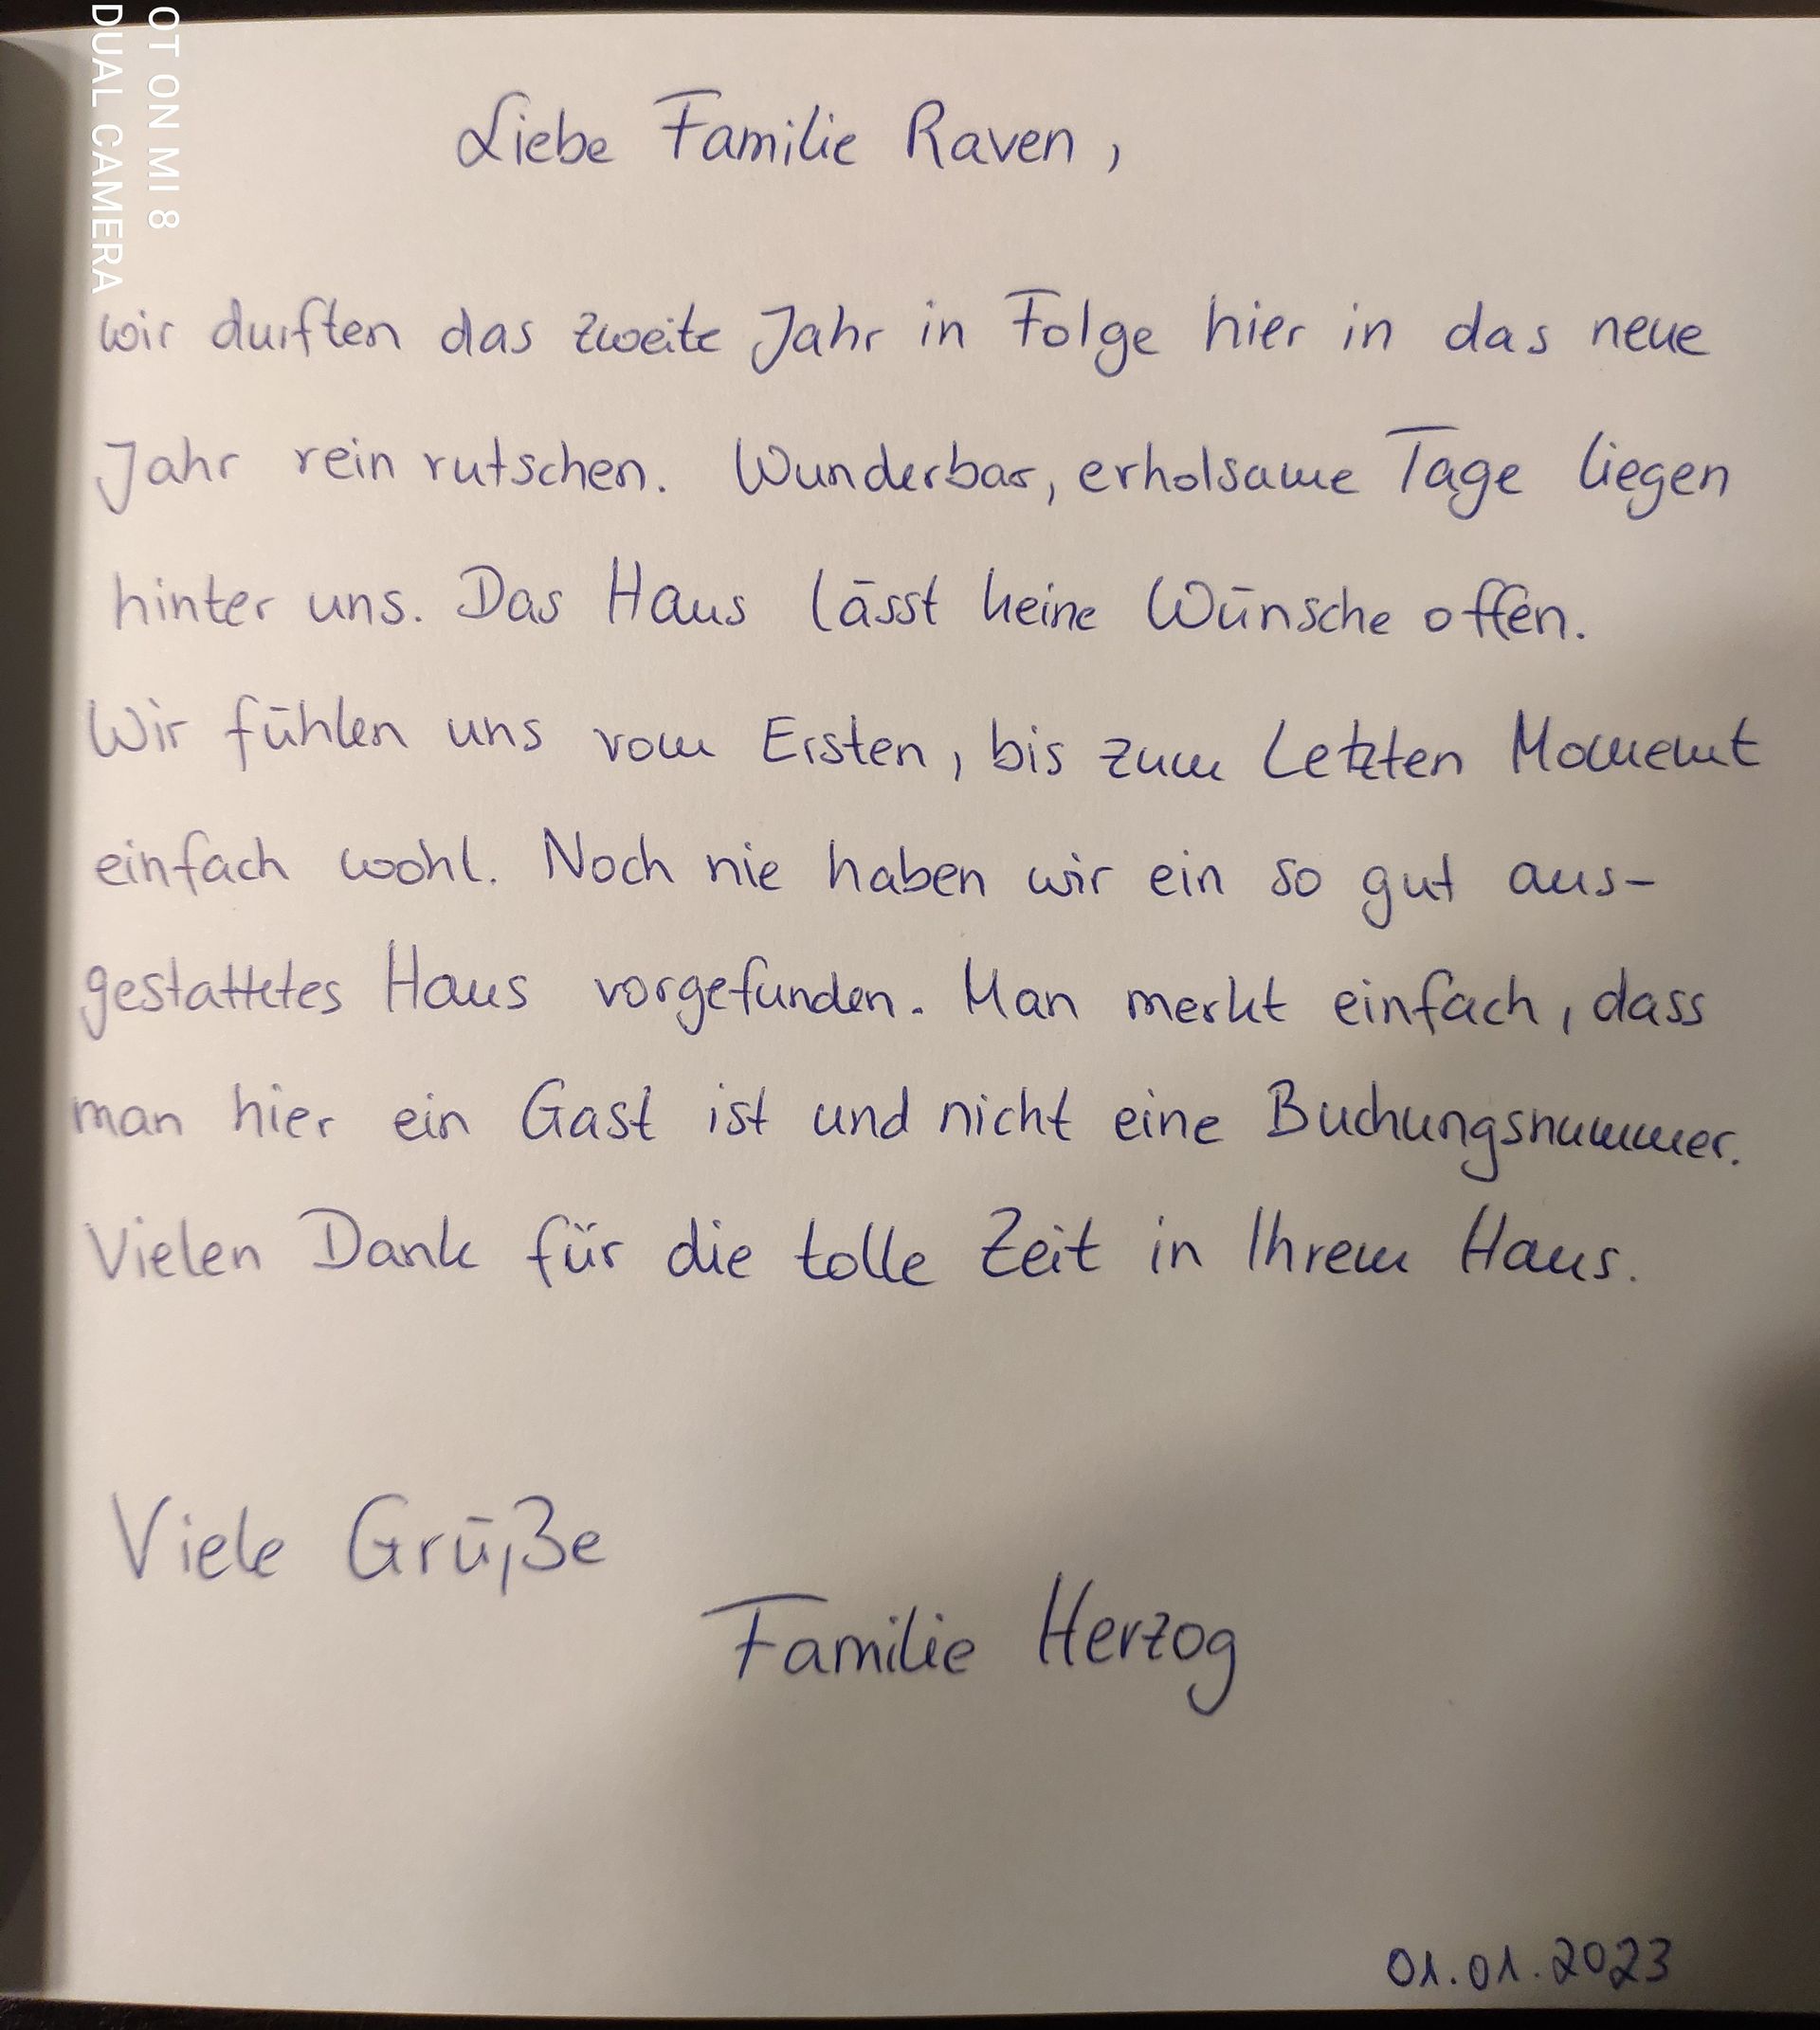 OT ON MI 8
DUAL CAMERA
Liebe Familie Raven,
wir durften das zweite Jahr in Folge hier in das neue
Jahr rein rutschen. Wunderbar, erholsame Tage liegen
hinter uns. Das Haus lässt keine Wünsche offen.
Wir fühlen uns vom Ersten, bis zum Letzten Moment
einfach wohl. Noch nie haben wir ein so gut aus-
gestattetes Haus vorgefunden. Man merkt einfach, dass
man hier ein Gast ist und nicht eine Buchungsnummer.
Vielen Dank für die tolle Zeit in Ihrem Haus.
Viele Grüße
Familie Herzog
01.01.2023